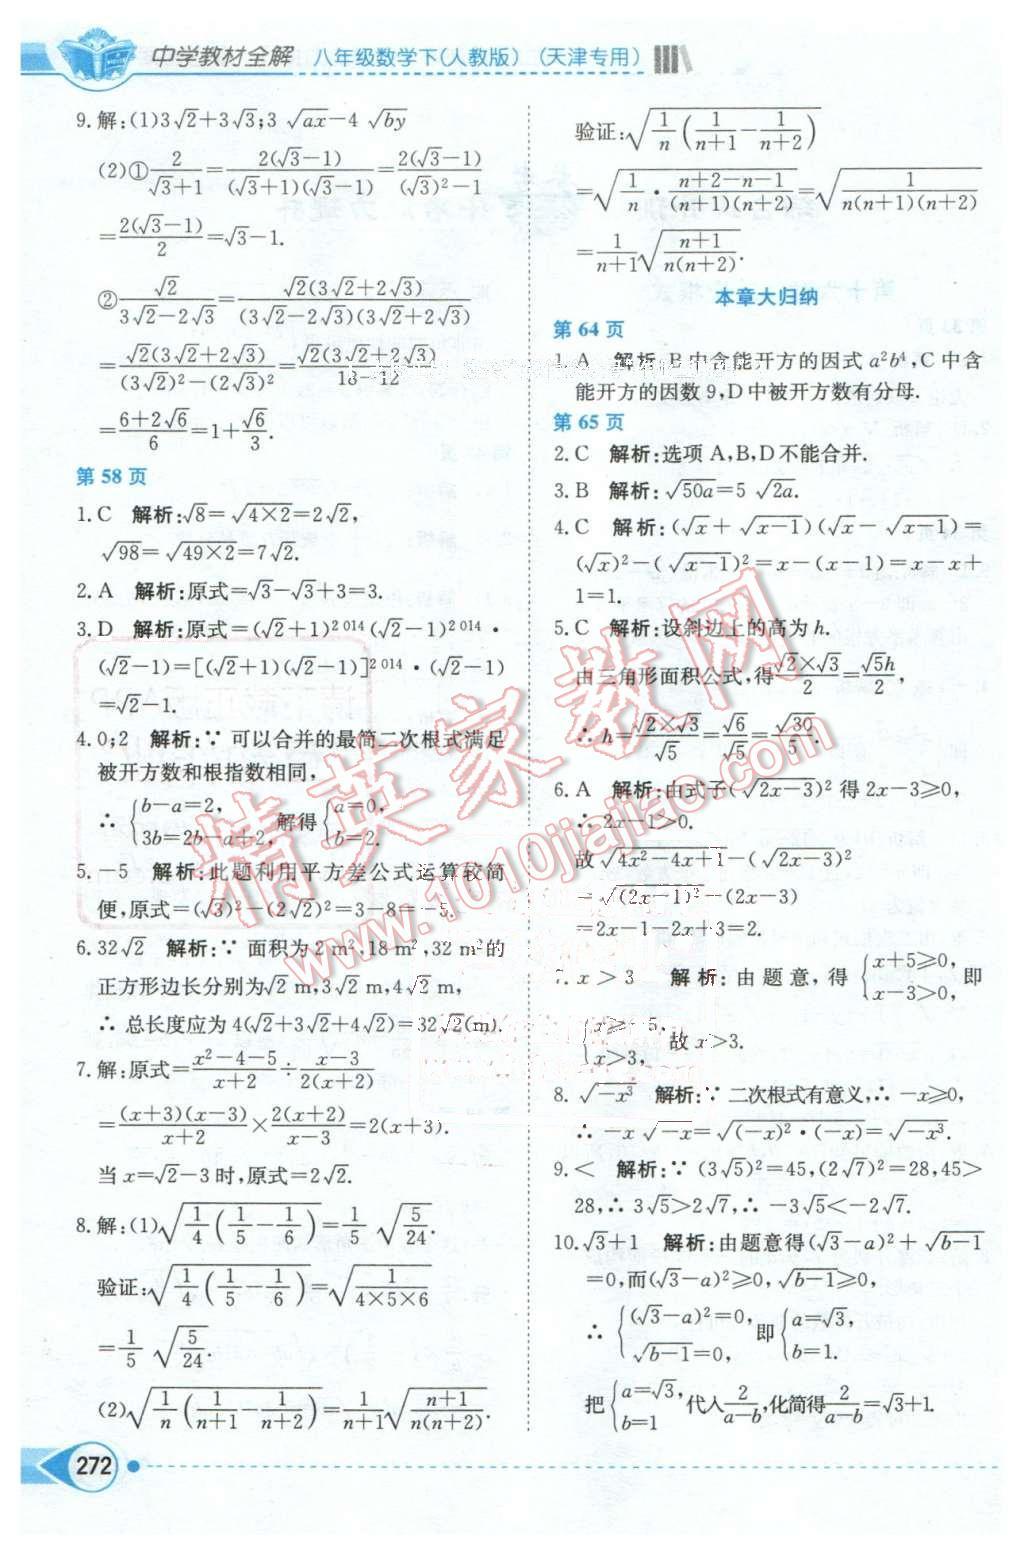 中学教材全解 八年级数学下(人教版) (天津专用)
9.解:(1)3√2+3√3;3√(ax)-4√(by)
(2)①2/(√3+1)=2(√3-1)/((√3+1)(√3-1))=2(√3-1)/((√3)²-1)
=2(√3-1)/2=√3-1.
②√2/(3√2-2√3)=√2(3√2+2√3)/((3√2-2√3)(3√2+2√3))
=√2(3√2+2√3)/((3√2)²-(2√3)²)=√2(3√2+2√3)/(18-12)
=(6+2√6)/6=1+√6/3.
第 58 页
1.C 解析:√8=√(4×2)=2√2,
√98=√(49×2)=7√2.
2.A 解析:原式=√3-√3+3=3.
3.D 解析:原式=(√2+1)²⁰¹⁴(√2-1)²⁰¹⁴·
(√2-1)=[(√2+1)(√2-1)]²⁰¹⁴·(√2-1)
=√2-1.
4.0;2 解析:∵ 可以合并的最简二次根式满足
被开方数和根指数相同,
∴ {b-a=2, 3b=2b-a+2, 解得{a=0, b=2.
5.-5 解析:此题利用平方差公式运算较简
便,原式=(√3)²-(2√2)²=3-8=-5.
6.32√2 解析:∵ 面积为 2 m²,18 m²,32 m²的
正方形边长分别为√2 m,3√2 m,4√2 m,
∴ 总长度应为 4(√2+3√2+4√2)=32√2(m).
7.解:原式=(x²-4-5)/(x+2)÷(x-3)/(2(x+2))
=((x+3)(x-3))/(x+2)×(2(x+2))/(x-3)=2(x+3).
当 x=√2-3 时,原式=2√2.
8.解:(1)√(1/4(1/5-1/6))=1/5√(5/24).
验证:√(1/4(1/5-1/6))=√(1/(4×5×6))
=1/5√(5/24).
(2)√(1/n(1/(n+1)-1/(n+2)))=1/(n+1)√((n+1)/(n(n+2))).
验证:√(1/n(1/(n+1)-1/(n+2)))
=√(1/n·(n+2-n-1)/((n+1)(n+2)))=√(1/(n(n+1)(n+2)))
=1/(n+1)√((n+1)/(n(n+2))).
本章大归纳
第 64 页
1.A 解析:B 中含能开方的因式 a²b⁴,C 中含
能开方的因数 9,D 中被开方数有分母.
第 65 页
2.C 解析:选项 A,B,D 不能合并.
3.B 解析:√(50a)=5√(2a).
4.C 解析:(√x+√(x-1))(√x-√(x-1))=
(√x)²-(√(x-1))²=x-(x-1)=x-x+
1=1.
5.C 解析:设斜边上的高为 h.
由三角形面积公式,得(√2×√3)/2=√5h/2,
∴ h=(√2×√3)/√5=√6/√5=√30/5.
6.A 解析:由式子(√(2x-3))² 得 2x-3≥0,
∴ 2x-1>0.
故√(4x²-4x+1)-(√(2x-3))²
=√((2x-1)²)-(2x-3)
=2x-1-2x+3=2.
7.x>3 解析:由题意,得{x+5≥0, x-3>0, 即
{x≥-5, x>3, 故 x>3.
8.√(-x³) 解析:∵ 二次根式有意义,∴ -x≥0,
∴ -x√(-x)=√((-x)²·(-x))=√(-x³).
9.< 解析:∵ (3√5)²=45,(2√7)²=28,45>
28,∴ 3√5>2√7,∴ -3√5<-2√7.
10.√3+1 解析:由题意得(√3-a)²+√(b-1)
=0,而(√3-a)²≥0,√(b-1)≥0,
∴ {(√3-a)²=0, √(b-1)=0, 即{a=√3, b=1.
把{a=√3, b=1 代入2/(a-b),化简得2/(a-b)=√3+1.
272
精英家教网
www.1010jiajiao.com